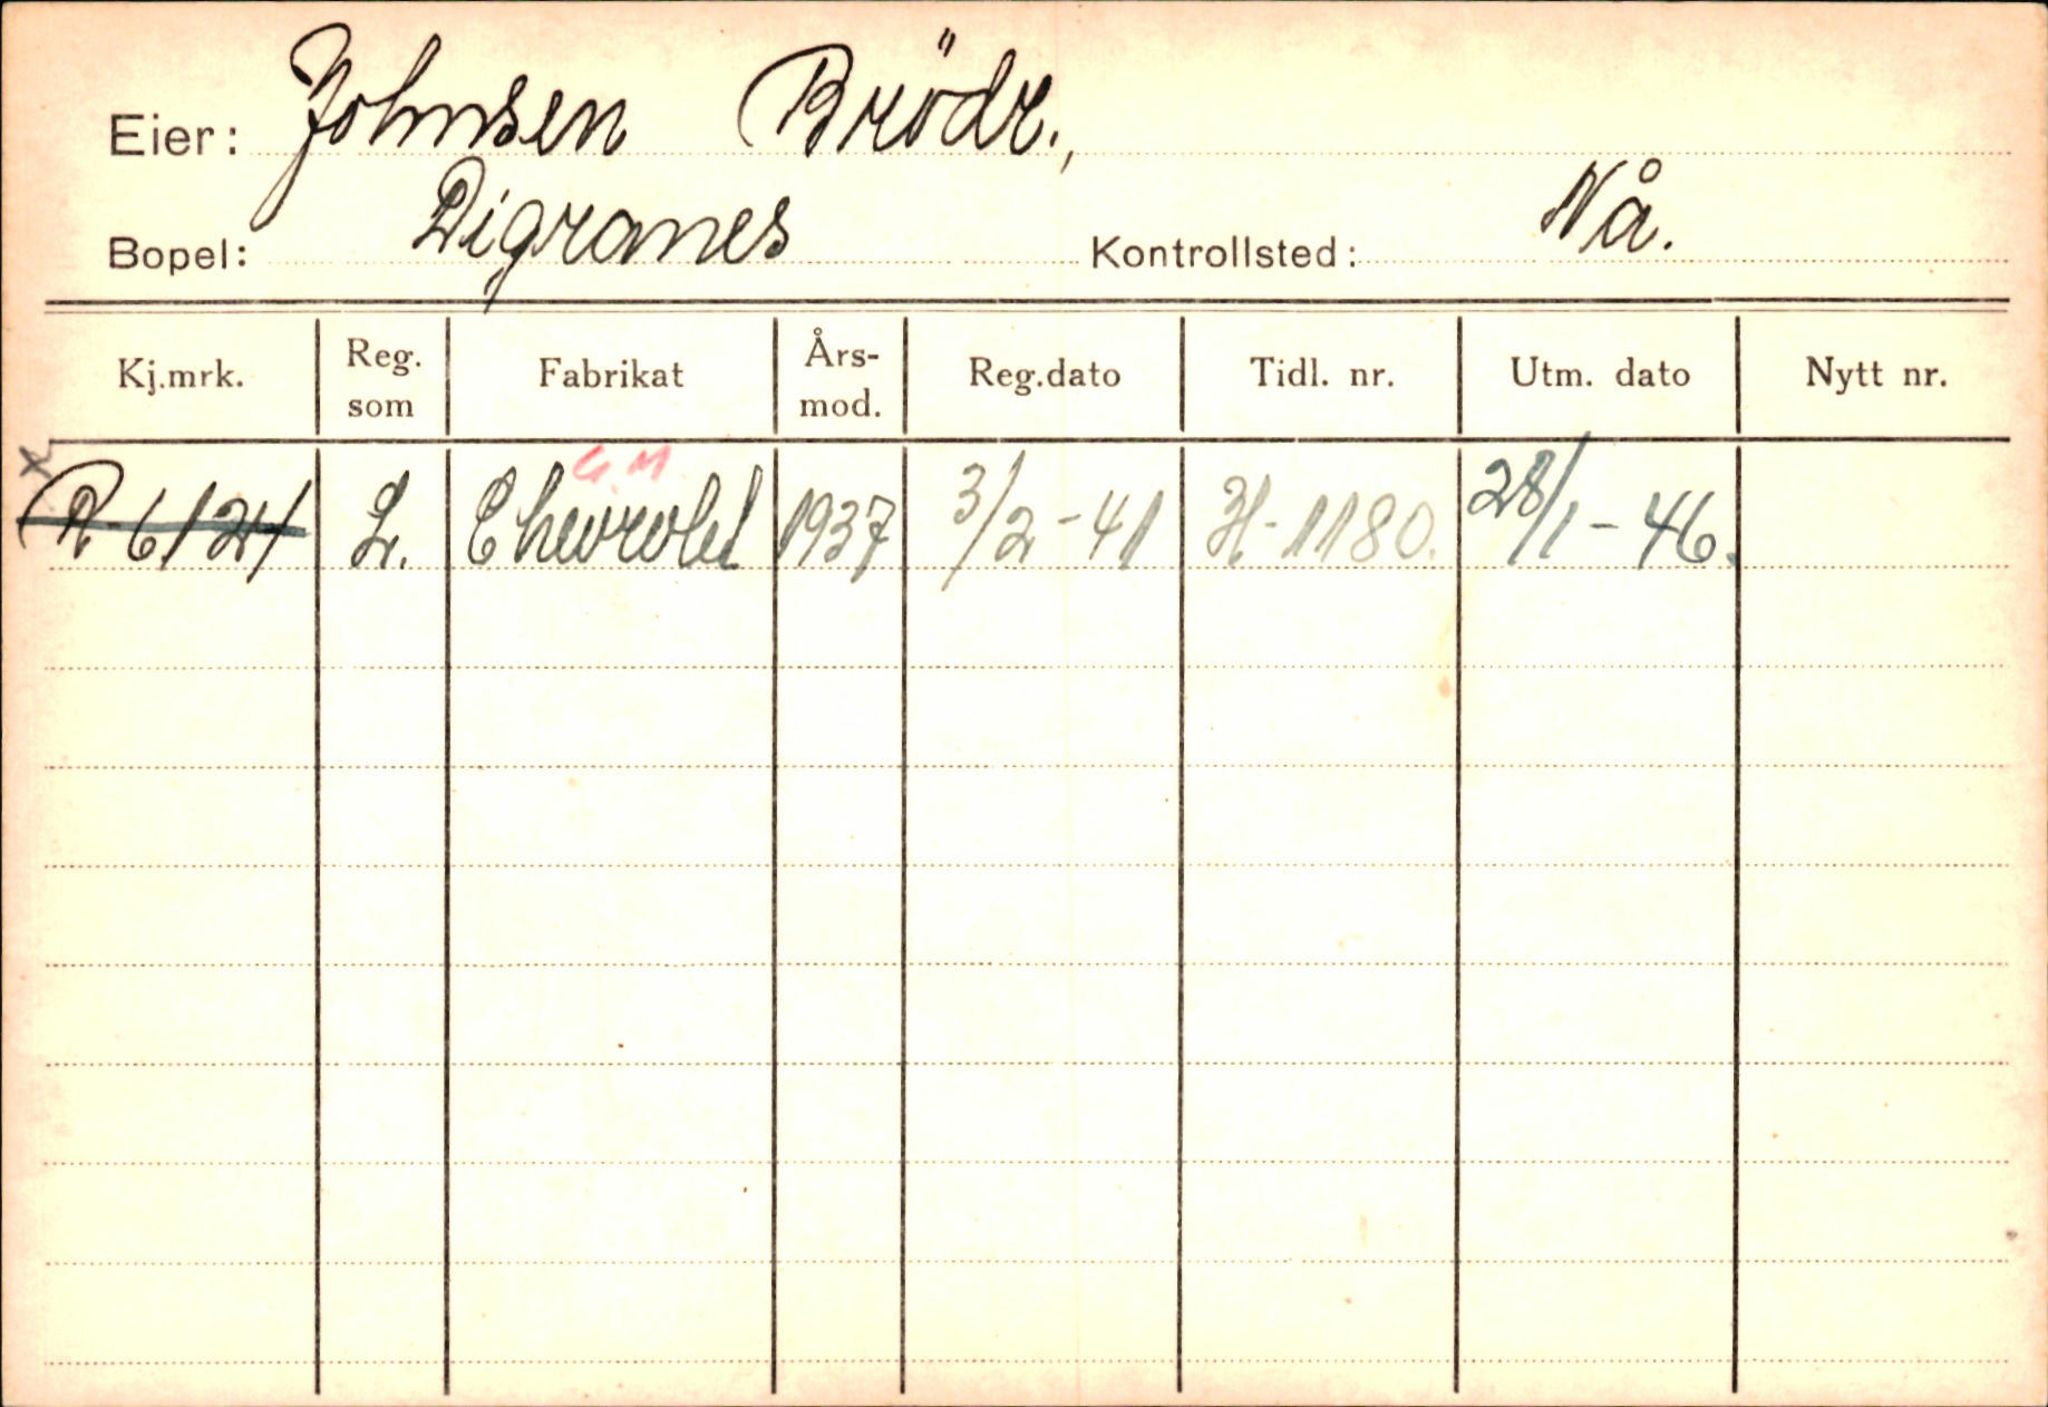 Eier: Johnsen Brödr.,
Bopel: Digranes Kontrollsted: Nå.
Kj.mrk. Reg. som Fabrikat Års-mod. Reg.dato Tidl. nr. Utm. dato Nytt nr.
x G.M.
R-6124 L. Chevrolet 1937 3/2-41 H-1180. 28/1-46.